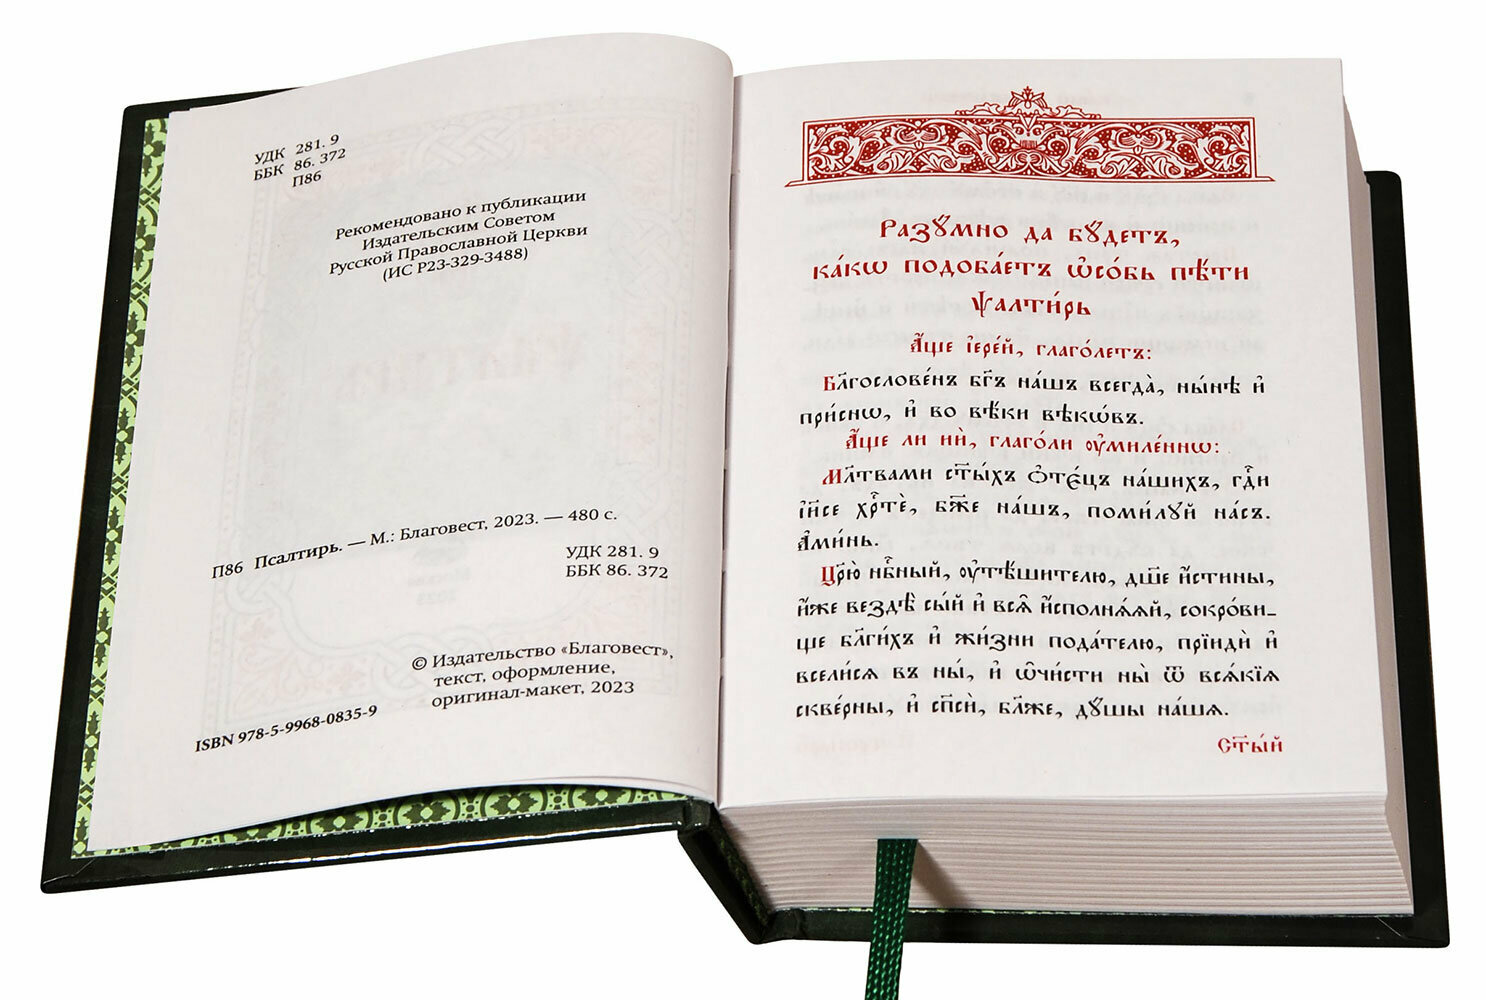 УДК 281. 9
ББК 86. 372
П86
Рекомендовано к публикации
Издательским Советом
Русской Православной Церкви
(ИС Р23-329-3488)
П86 Псалтирь. — М.: Благовест, 2023. — 480 с.
УДК 281. 9
ББК 86. 372
© Издательство «Благовест»,
текст, оформление,
оригинал-макет, 2023
ISBN 978-5-9968-0835-9
Разꙋмно да бꙋдетъ,
ка́кѡ подоба́етъ ѡ҆со́бь пѣ́ти
ѱалти́рь
А҆́ще і҆ере́й, глаго́летъ:
Бл҃гослове́нъ бг҃ъ на́шъ всегда̀, ны́нѣ и҆
при́снѡ, и҆ во вѣ́ки вѣкѡ́въ.
А҆́ще ли ни̑, глаго́ли ᲂу҆миле́ннѡ:
Мл҃твами ст҃ы́хъ ѻ҆тє́цъ на́шихъ, гд҇и
і҆и҃се хр҇тѐ, бж҃е на́шъ, поми́лꙋй на́съ.
А҆ми́нь.
Цр҃ю̀ нб҇ный, ᲂу҆тѣ́шителю, дш҃е и҆́стины,
и҆́же вездѣ̀ сы́й и҆ всѧ̑ и҆сполнѧ́ѧй, сокро́ви_
ще бл҃ги́хъ и҆ жи́зни пода́телю, прїидѝ и҆
всели́сѧ въ ны́, и҆ ѡ҆чи́сти ны̀ ѿ всѧ́кїѧ
скве́рны, и҆ сп҃сѝ, бл҃же, дꙋ́шы на́шѧ.
Ст҃ы́й